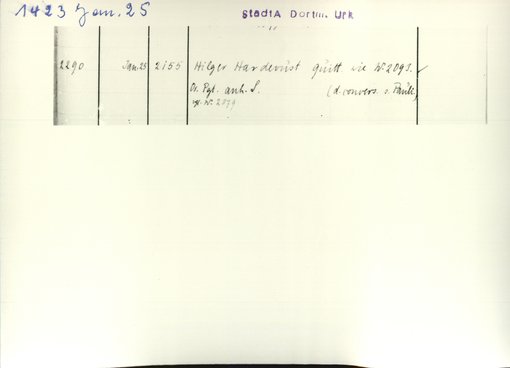 1423 Jan. 25
StadtA Dortm. Urk
2290 Jan. 25 2155 Hilger Hardevust quitt. wie Nr. 2091. ✓
Or. Pgt. anh. S. (d. convers. s. Pauli)
vgl. Nr. 2079